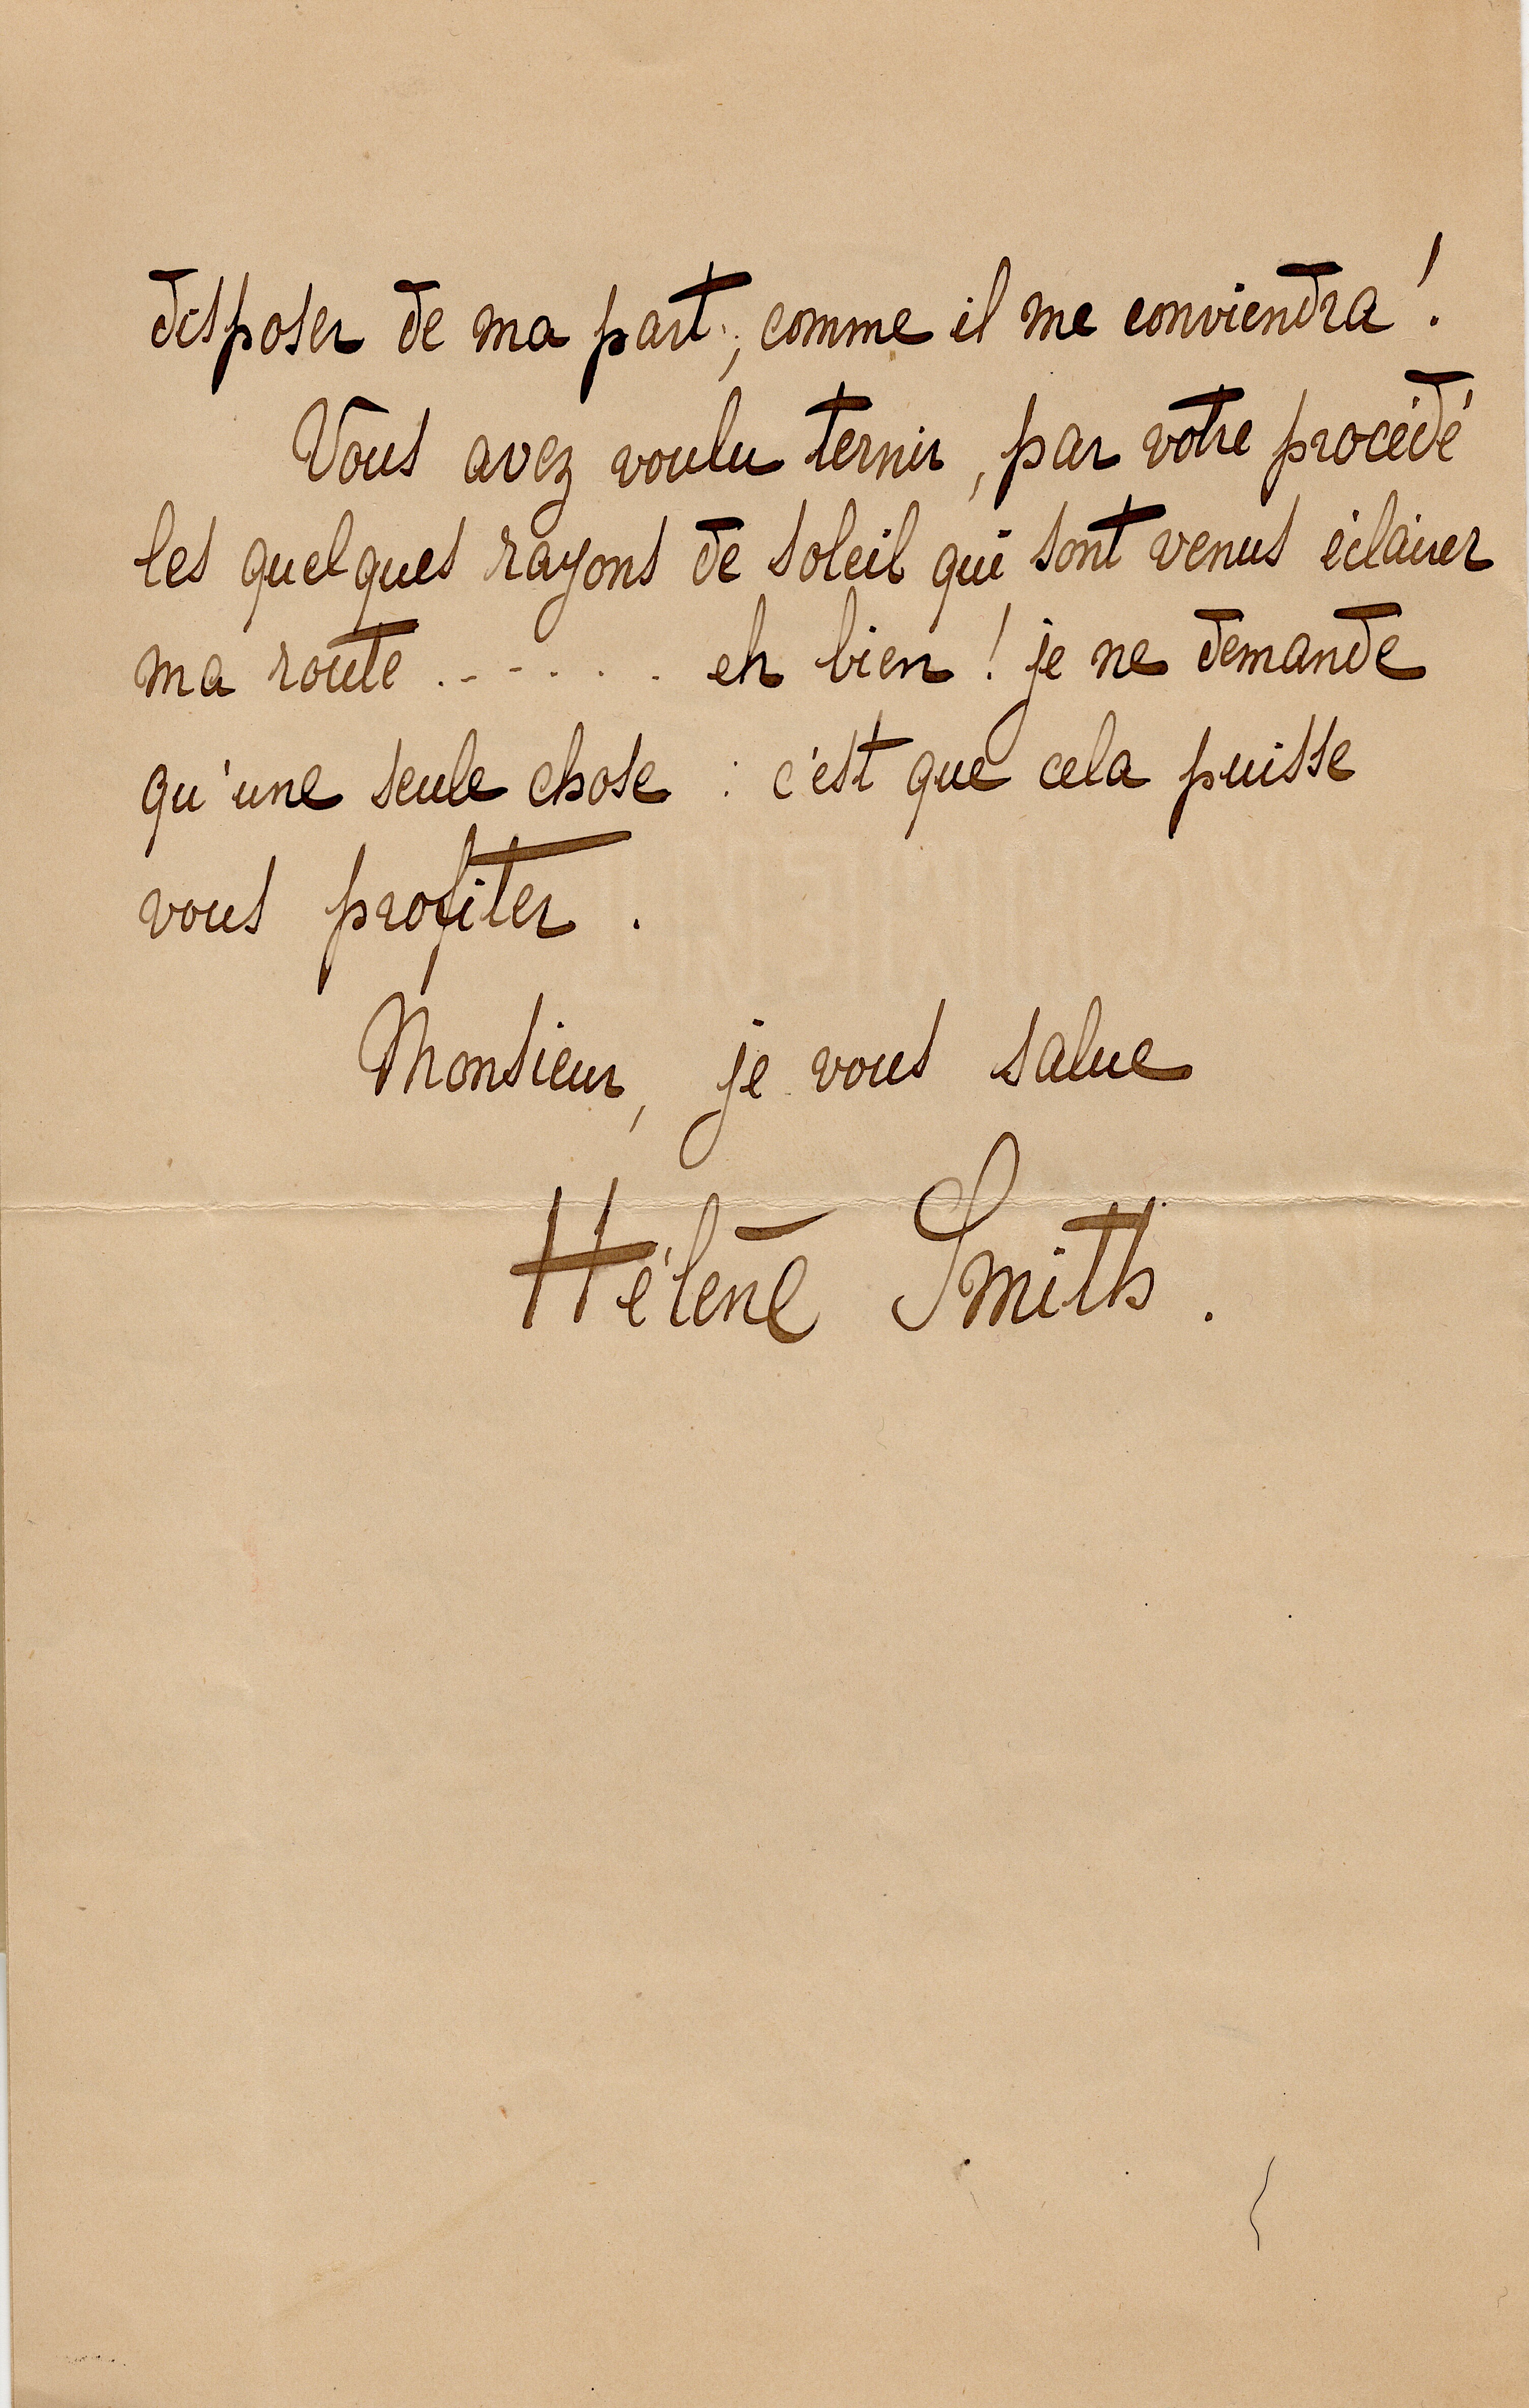 disposer de ma part, comme il me conviendra !
Vous avez voulu ternir, par votre procédé
les quelques rayons de soleil qui sont venus éclairer
ma route . - - . . . eh bien ! je ne demande
qu'une seule chose : c'est que cela puisse
vous profiter .
Monsieur, je vous salue
Hélène Smith .